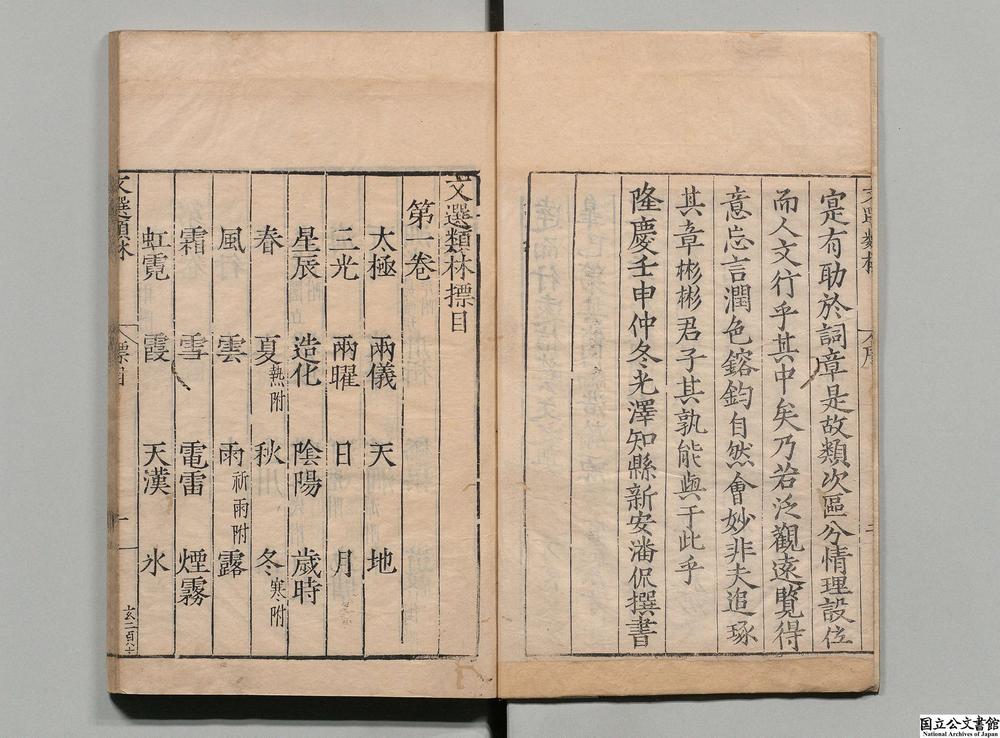 寔有助於詞章是故類次區分情理設位
而人文行乎其中矣乃若泛觀遠覽得
意忘言潤色鎔鈞自然會妙非夫追琢
其章彬彬君子其孰能與于此乎
隆慶壬申仲冬光澤知縣新安潘侃撰書
文選類林摽目
第一卷
太極 兩儀 天 地
三光 兩曜 日 月
星辰 造化 陰陽 歲時
春 夏熱附 秋 冬寒附
風 雲 雨祈雨附 露
霜 雪 電雷 煙霧
虹霓 霞 天漢 氷
文選類林
国立公文書館
National Archives of Japan